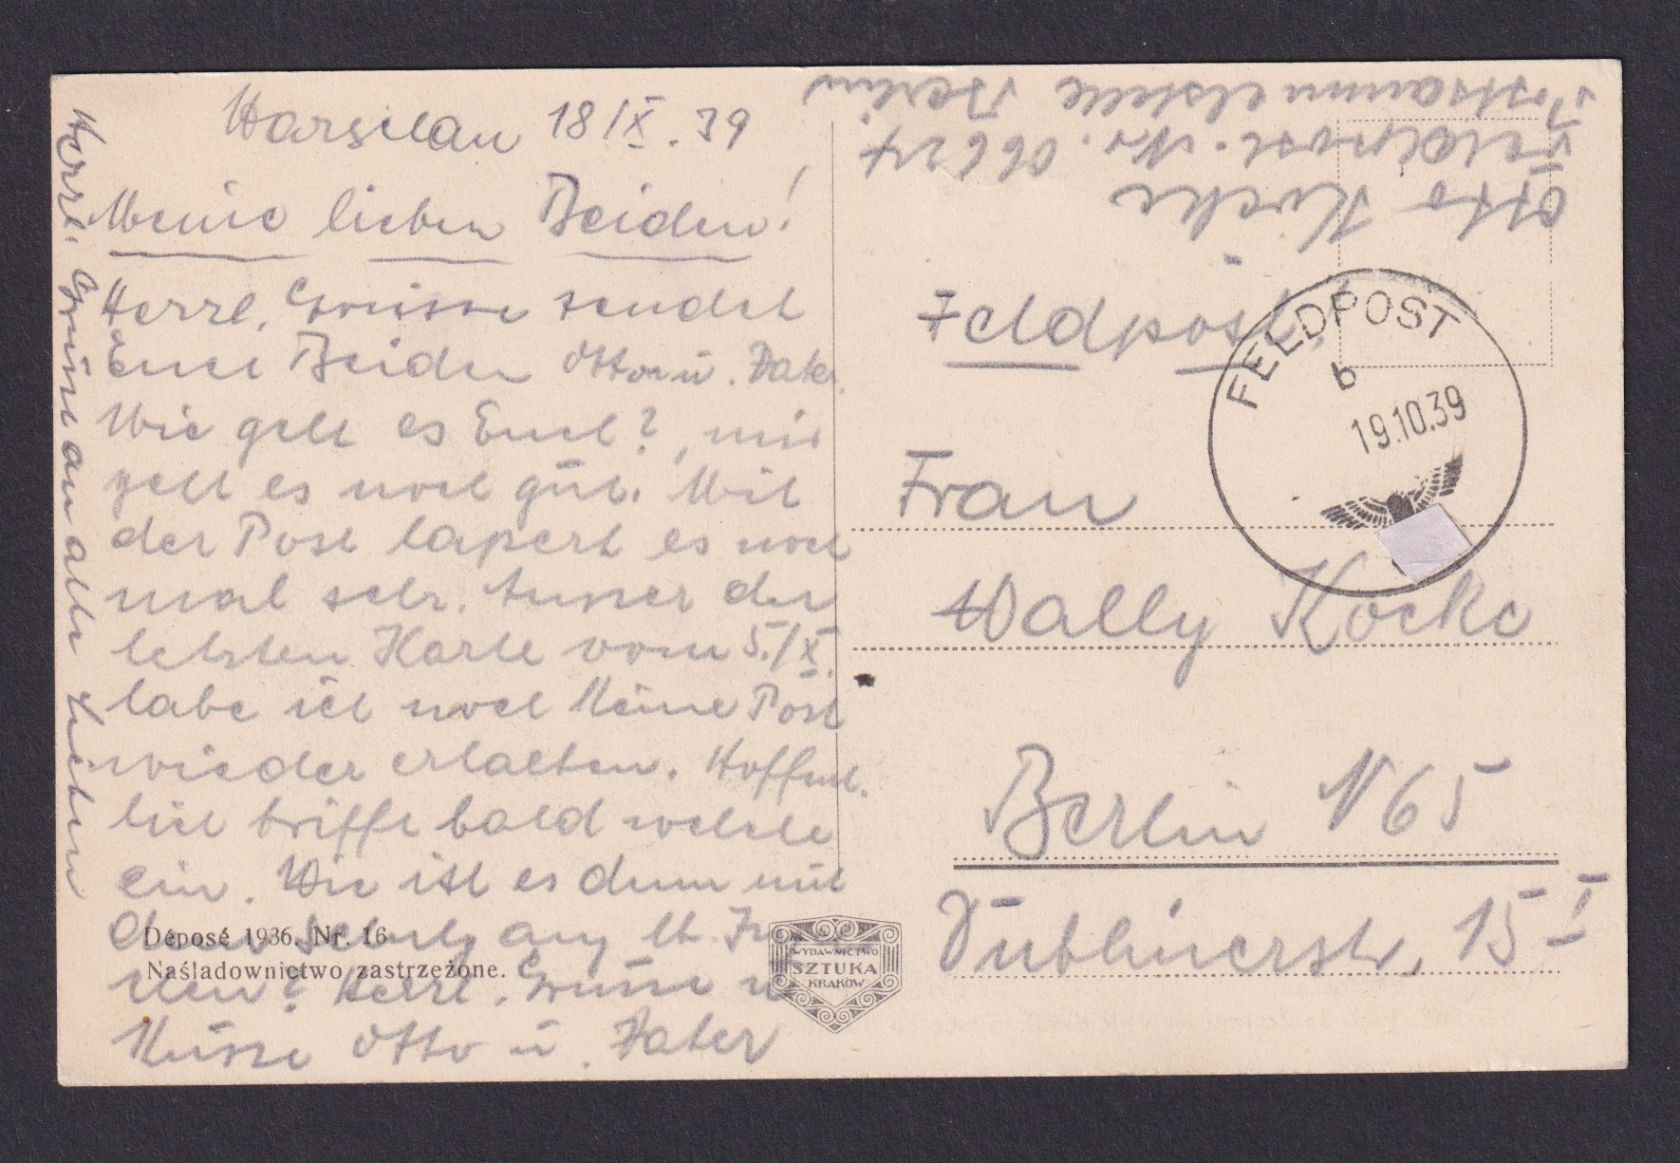 Warschau 18/X. 39
Meine lieben Beiden!
Herzl. Grüsse sendet
Euch Beiden Otto u. Vater.
Wie geht es Euch?, mir
geht es noch gut. Mit
der Post lapert es noch
mal sehr. Ausser der
letzten Karte vom 5./X.
habe ich noch keine Post
wieder erhalten. Hoffent-
lich trifft bald welche
ein. Wie ist es denn mit
nen? Herzl. Grüsse u.
Küsse Otto u. Vater
Herzl. Grüsse an alle Lieben
Déposé 1936. Nr. 16
Naśladownictwo zastrzeżone.
WYDAWNICTWO
SZTUKA
KRAKÓW
Otto Kocke
Feldpost. Nr. 06624
Postsammelstelle Berlin
Feldpost!
FELDPOST
b
19.10.39
Frau
Wally Kocke
Berlin N 65
Dublinerstr. 15 I